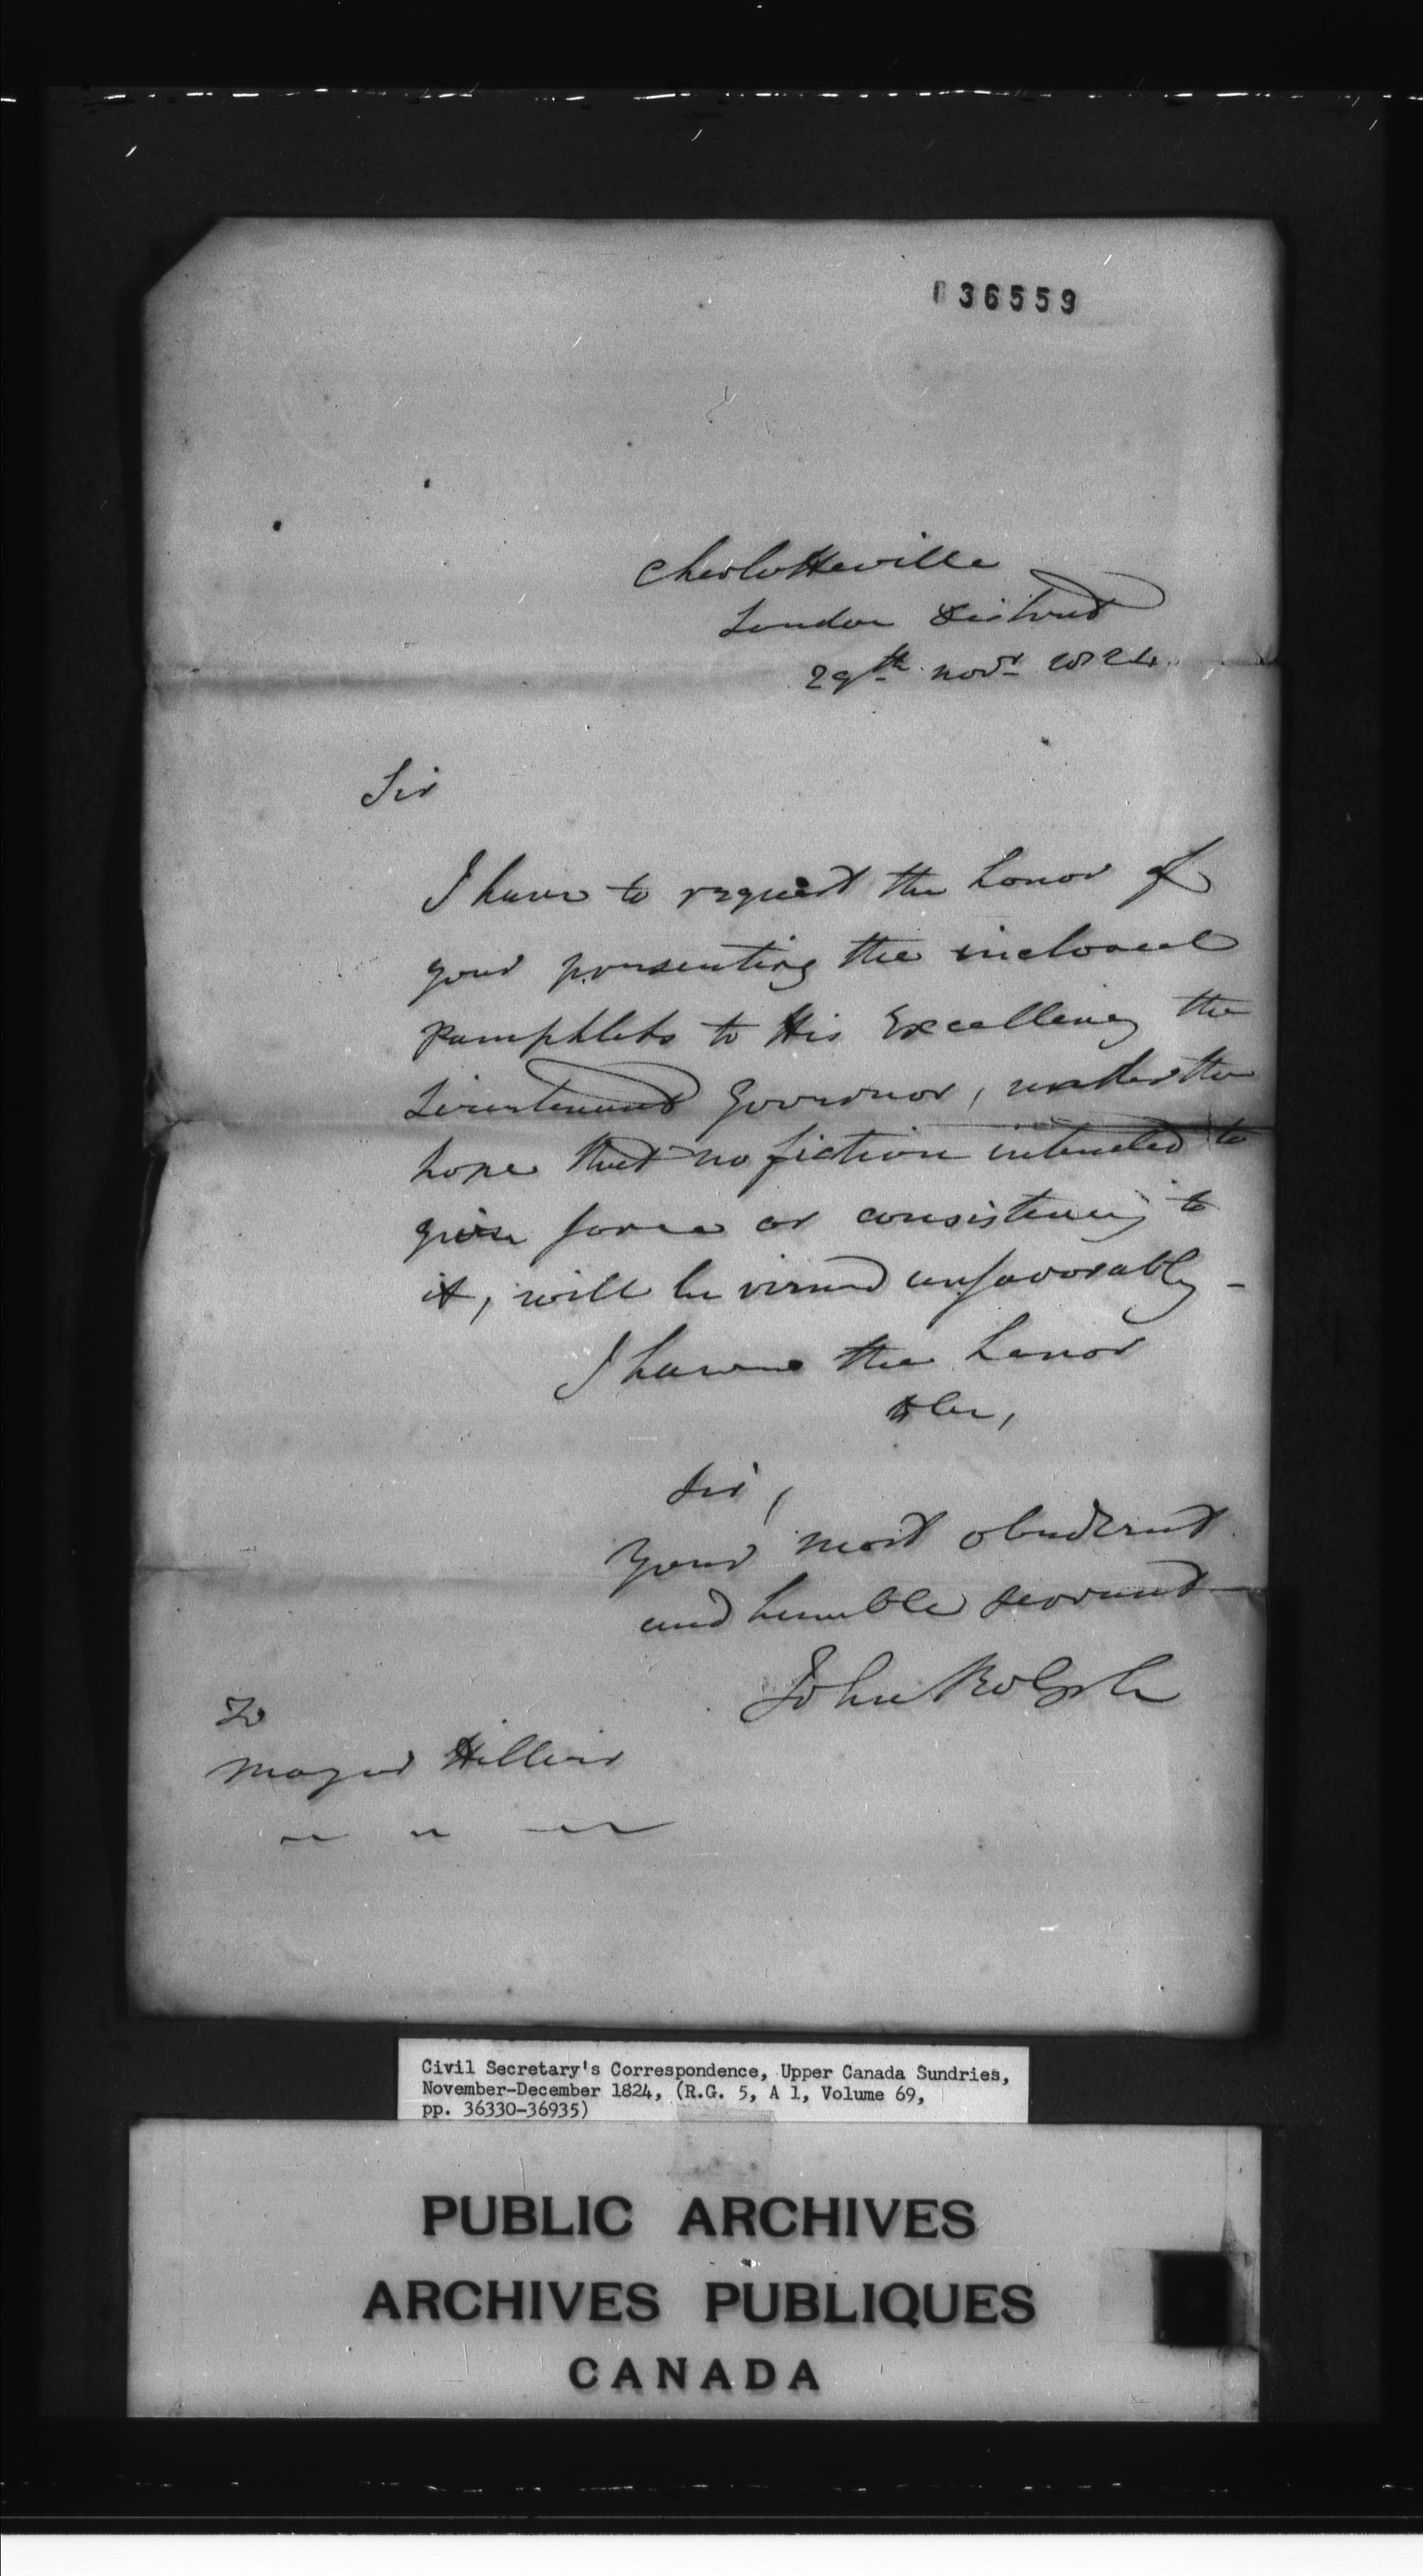 36559
Charlotteville
London District
29th Novr 1824
Sir
I have to request the honor of
your presenting the inclosed
Pamphlets to His Excellency the
Lieutenant Governor, under the
hope that no fiction intended to
give force or consistency to
it, will be viewed unfavorably -
I have the honor
to be,
Sir,
Your most obedient
and humble servant
John Rolph
To
Major Hillier
Civil Secretary's Correspondence, Upper Canada Sundries,
November-December 1824, (R.G. 5, A 1, Volume 69,
pp. 36330-36935)
PUBLIC ARCHIVES
ARCHIVES PUBLIQUES
CANADA